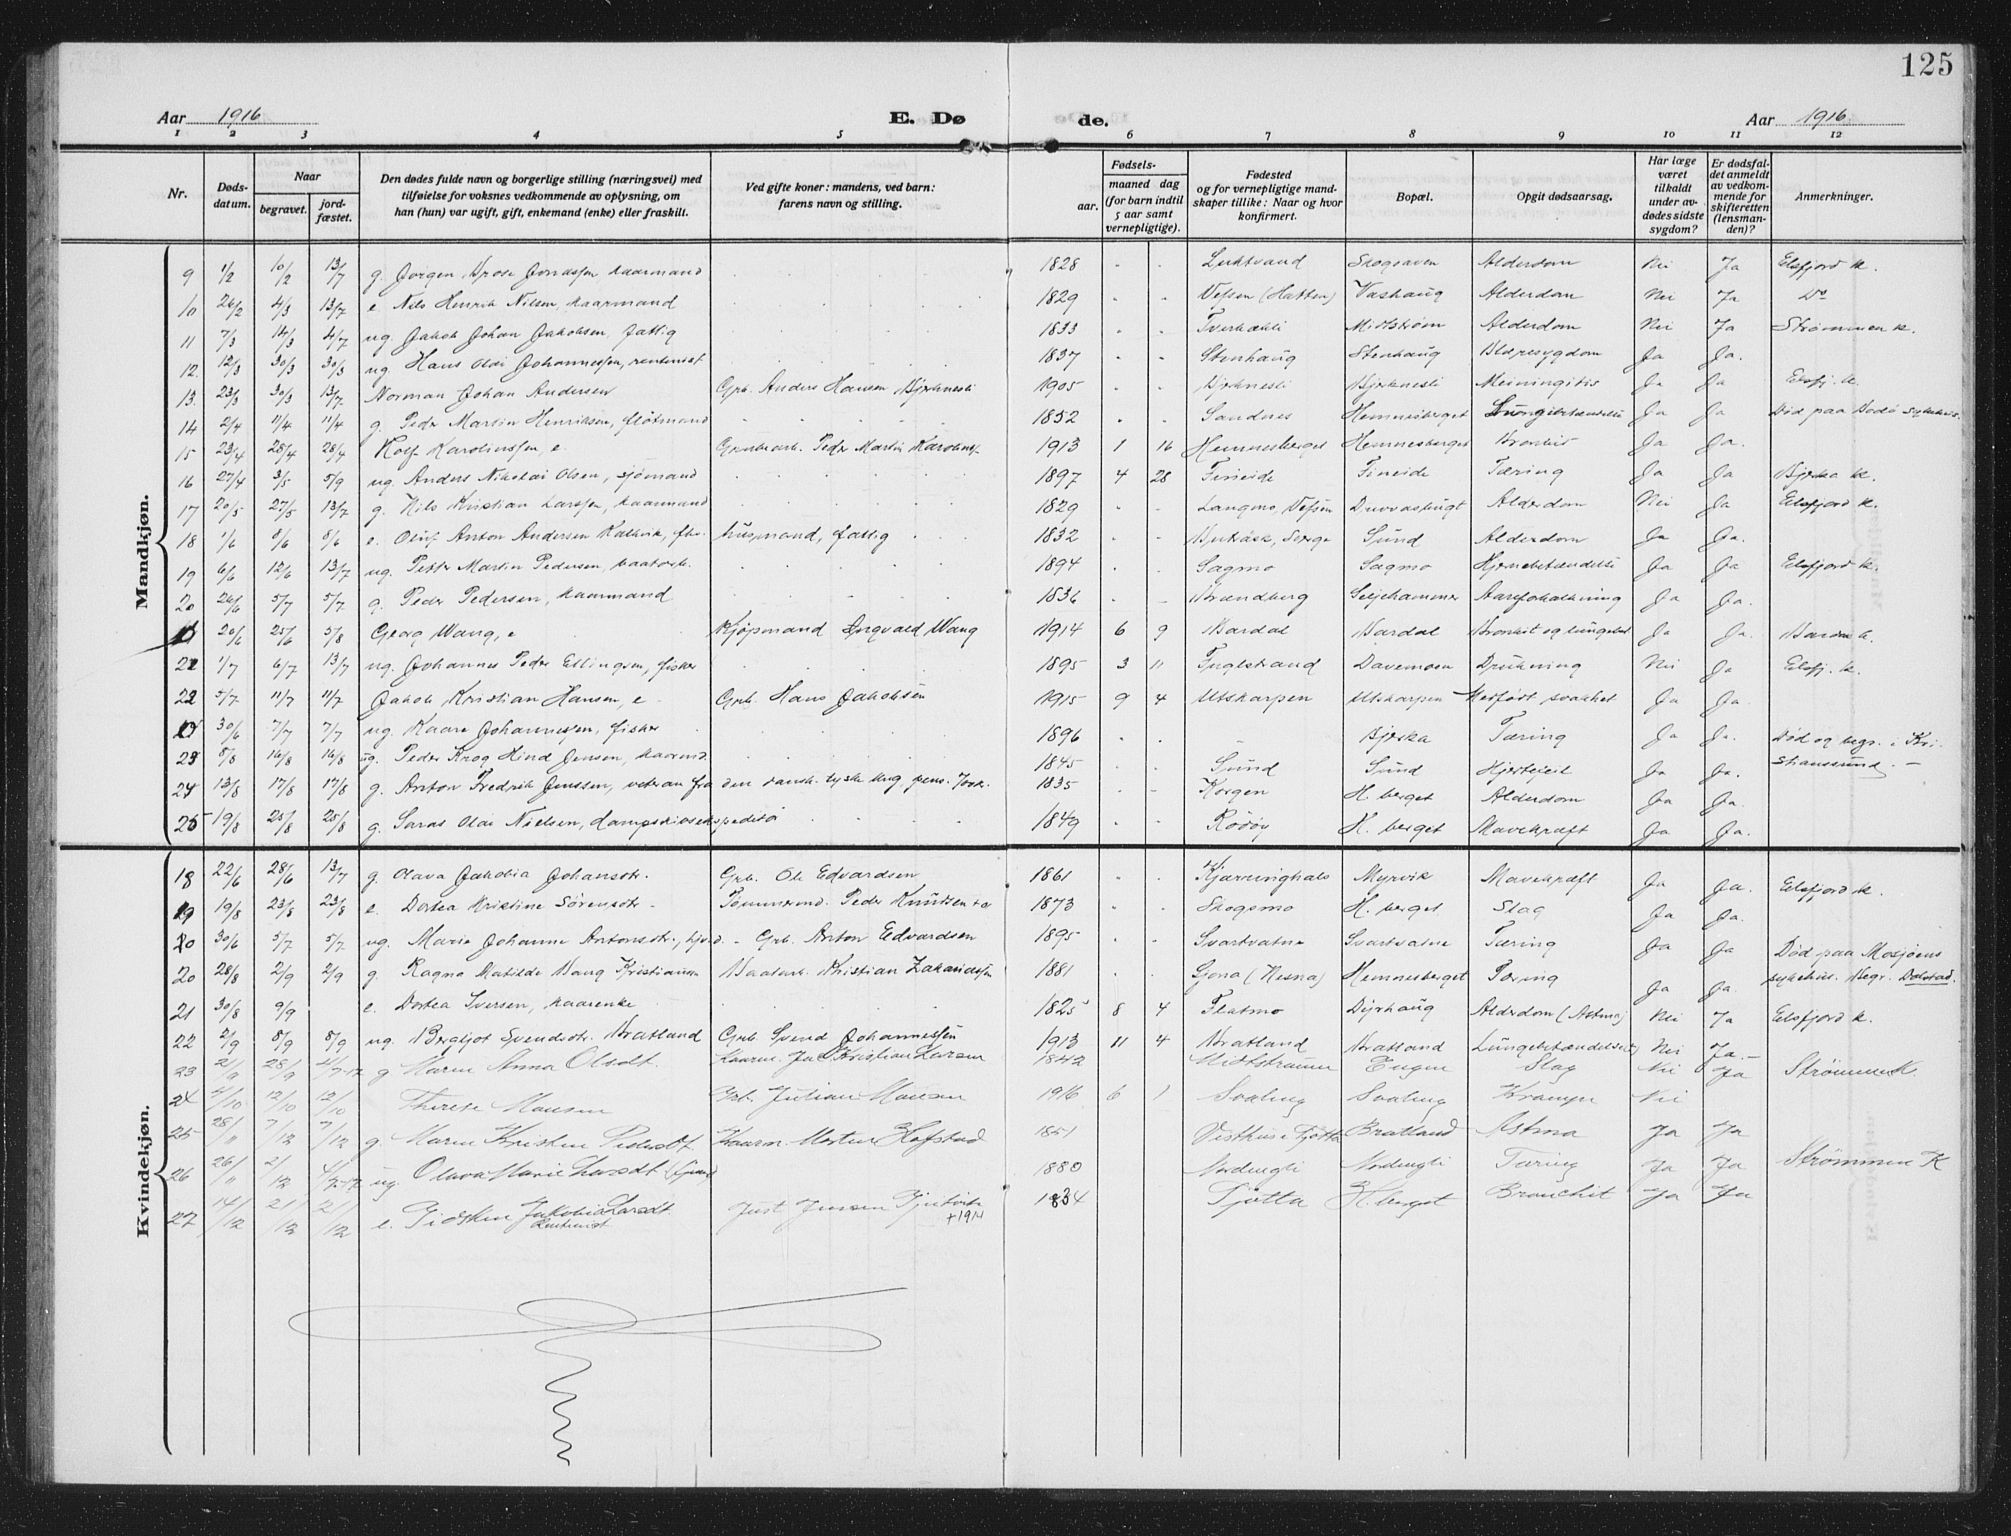 125
Aar 1916 E. Dø de. Aar 1916
1 2 3 4 5 6 7 8 9 10 11 12
Nr. Døds-datum. Naar begravet. jord-fæstet. Den dødes fulde navn og borgerlige stilling (næringsvei) med tilføielse for voksnes vedkommende av oplysning, om han (hun) var ugift, gift, enkemand (enke) eller fraskilt. Ved gifte koner: mandens, ved barn: farens navn og stilling. Fødsels- aar. maaned dag (for barn indtil 5 aar samt vernepligtige). Fødested og for vernepligtige mand-skaper tillike: Naar og hvor konfirmert. Bopæl. Opgit dødsaarsag. Har læge været tilkaldt under av-dødes sidste sygdom? Er dødsfal-det anmeldt av vedkom-mende for skifteretten (lensman-den)? Anmerkninger.
Mandkjøn.
9 1/2 10/2 13/7 g. Jørgen Jonassen kaarmand 1828 Luktvand Skogsaven Alderdom Nei Ja Elsfjord k.
10 26/2 4/3 13/7 e. Nils Henrik Nilsen, kaarmand 1829 Vefsen (Hatten) Vashaug Alderdom Nei Ja Do
11 7/3 14/3 4/7 ug. Jakob Johan Jakobsen, fattig 1833 Midtstrøm Alderdom Nei Ja Strømmen k.
12. 12/3 30/3 30/3 ug. Hans Olai Johannessen, rentenist 1837 Stenhaug Stenhaug Blæresygdom Ja Ja.
13. 23/3 30/3 13/7 Norman Johan Andersen Grb. Anders Hansen Bjerknesli 1905 Bjerknesli Bjerknesli Meiningitis Ja Ja Elsfj. k.
14 2/4 11/4 11/4 g. Peder Martin Henriksen, fløtmand 1852 Sandnes Hemnesberget Lungebetændelse Ja Ja Død paa Bodø sykehus.
15 23/4 28/4 28/4 Rolf Karolinssen, e. Grubearb. Peder Martin Karolinss. 1913 1 16 Hemnesberget Hemnesberget Bronkit Ja Ja.
16 27/4 3/5 5/9 ug. Anders Nikolai Olsen, sjømand 1897 4 28 Fineide Fineide Tæring Ja Ja Bjerka k.
17 20/5 27/5 13/7 g. Nils Kristian Larssen, kaarmand 1829 Langmo, Vefsen Alderdom Nei Ja Elsfjord k.
18 1/6 8/6 8/6 e. Oluf Anton Andersen Kalkvik, fhv. husmand, fattig 1832 Sund Alderdom Ja Ja.
19 6/6 12/6 13/7 ug. Peter Martin Pedersen, baatarb. 1894 Sagmo Sagmo Hjernebetændelse Ja Ja Elsfjord k.
20 26/6 5/7 5/7 g. Peder Pedersen, kaarmand 1836 Brændberg Seljehammer Aareforkalkning Ja Ja.
20/6 25/6 5/8 Georg Wang, e Kjøpmand Ingvald Wang 1914 6 9 Bardal Bardal Bronkit og lungebet. Ja Ja. Bardal k.
21 1/7 6/7 13/7 ug. Johannes Peder Ellingsen, fisker 1895 3 11 Fuglstrand Davemoen Drukning Nei Ja Elsfj. k.
22 5/7 11/7 11/7 Jakob Kristian Hansen, e. Grb. Hans Jakobsen 1915 9 4 Utskarpen Utskarpen Medfødt svakhet Ja Ja.
30/6 7/7 7/7 ug. Kaare Johannessen, fisker 1896 Bjerka Tæring Ja Ja. Død og begr. i Kri-
23 8/8 16/8 16/8 ug. Peder Krog Hind Jensen, kaarmd. 1845 Sund Sund Hjertefeil Ja Ja. stianssund. -
24 13/8 17/8 17/8 g. Anton Fredrik Jenssen, veteran fra den dansk-tyske krig, pens. 1835 Korgen H. berget Alderdom Ja Ja.
25 19/8 25/8 25/8 g. Saras Olai Nielsen, dampskibsekspeditør 1849 Rødøy H. berget Mavekræft Ja Ja.
Kvindekjøn.
18 22/6 28/6 13/7 g. Olava Jakobia Johansdtr. Grb. Ole Edvardsen 1861 Kjærringhals Myrvik Mavekræft Ja Ja. Elsfjord k.
19 19/8 23/8 23/8 e. Dortea Kristine Sørensdtr. Tømmermd. Peder Knudsen 1873 Skogsmo H. berget Slag Ja Ja.
20 30/6 5/7 5/7 ug. Marie Johanne Antonsdtr., - Grb. Anton Edvardsen 1895 Svartvatne Svartvatne Tæring Ja Ja Død paa Mosjøens
20 28/8 2/9 2/9 g Ragna Matilde Haug Kristiansen Baatarb. Kristian Zakariassen 1881 (Nesna) Hemnesberget Tæring Ja Ja. sykehus. Begr. Dolstad.
21 30/8 9/9 e. Dortea Iversen, kaarenke 1825 8 4 Flatmo Dyrhaug Alderdom (Astma) Nei Ja Elsfjord k.
22 2/9 8/9 8/9 ug. Bergljot Svendsdtr. Bratland Grb. Svend Johannessen 1913 11 4 Bratland Bratland Lungebetændelse Nei Ja. -
23 21/9 28/9 g Maren Anna Olsdt. Kaarm. Kristian Larsen 1842 Midtstraumen Slag Nei Ja Strømmen K.
24 4/10 12/10 12/10 Therese Hansen Grb. Julian Hansen 1916 6 1 Svaling Svaling Krampe Nei
25 28/11 7/12 7/12 g Maren Kristine Pedersdt. Kaarm. Morten Hofstad 1851 Visthus i Tjøtta Bratland Astma Ja Ja
26 26/11 2/12 ug. Olava Marie Larsdt. 1880 Nordengli Nordengli Tæring Ja Ja Strømmen K
27 14/12 21/12 21/12 e. Jakobia Larsdt. Rentenist Just Jensen +1914 1834 Tjøtta H. berget Bronchit Ja Ja